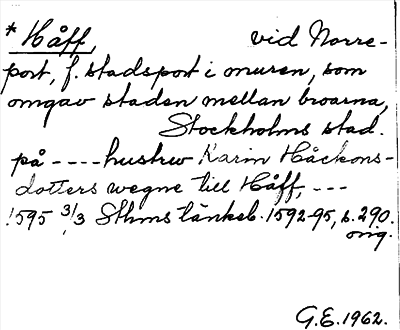 * Håff, vid Norre-
port, f. stadsport i muren, som
omgav staden mellan broarna,
Stockholms stad.
på ---- hustrw Karin Håckons-
dotters wegne till Håff, ---
1595 3/3 Sthms tänkeb. 1592-95, s. 290.
orig.
G.E. 1962.